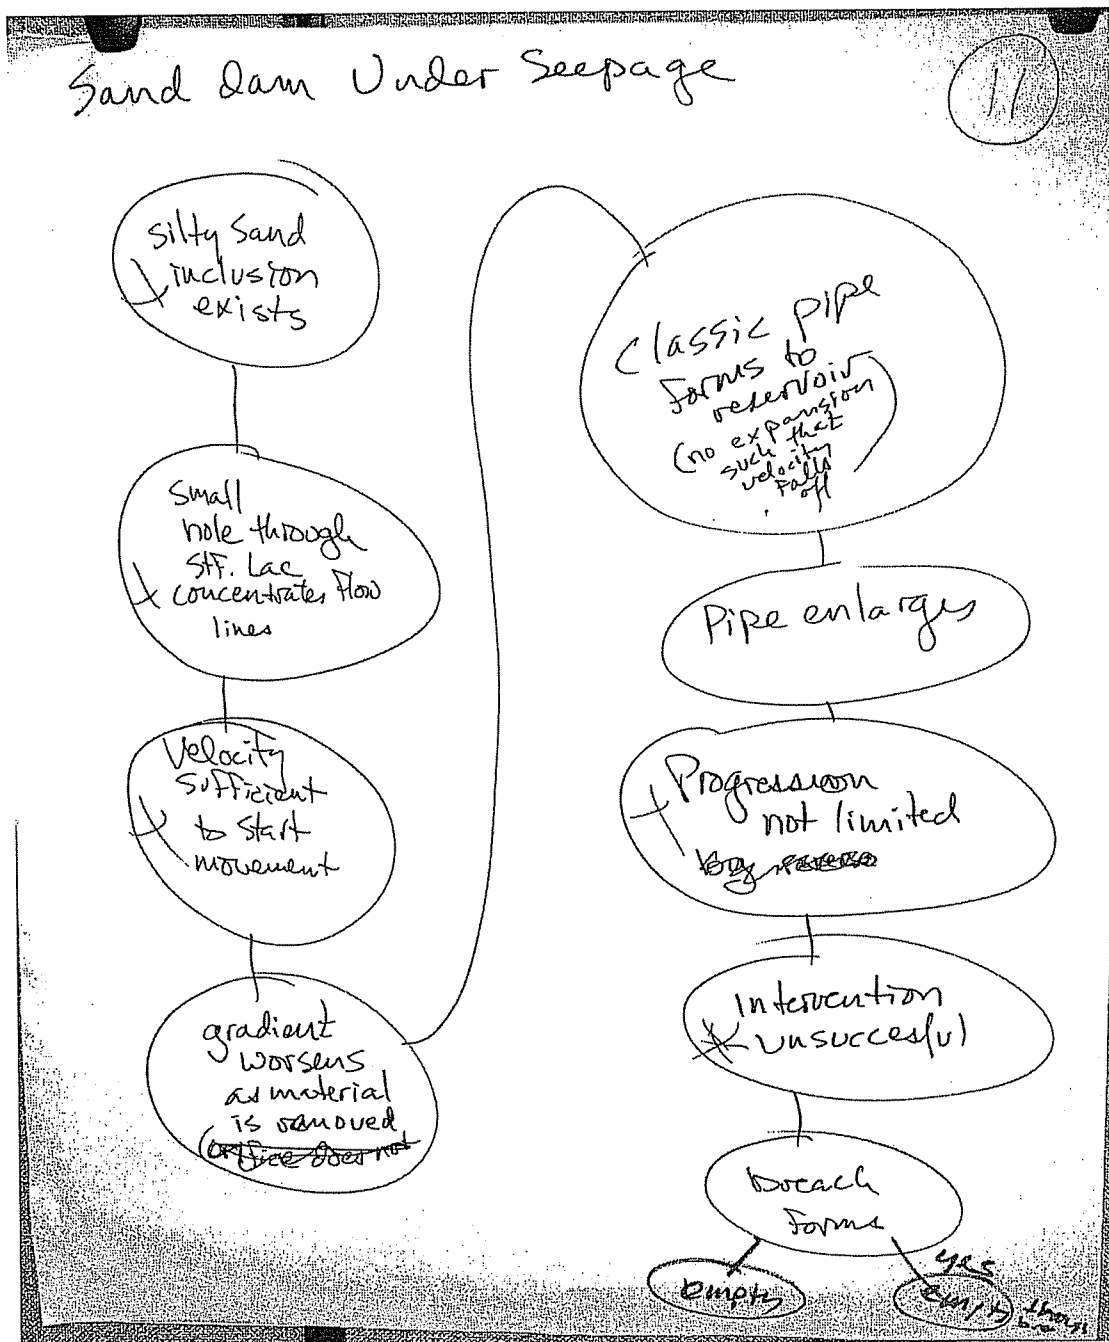 Sand dam Under Seepage
11
silty sand
inclusion
exists
small
hole through
Stf. Lac
concentrates flow
lines
Velocity
sufficient
to start
movement
gradient
worsens
as material
is removed
Classic pipe
forms to
reservoir
(no expansion
such that
velocity
falls
off
Pipe enlarges
Progression
not limited
by
Intervention
unsuccesful
breach
forms
empty
yes
empty